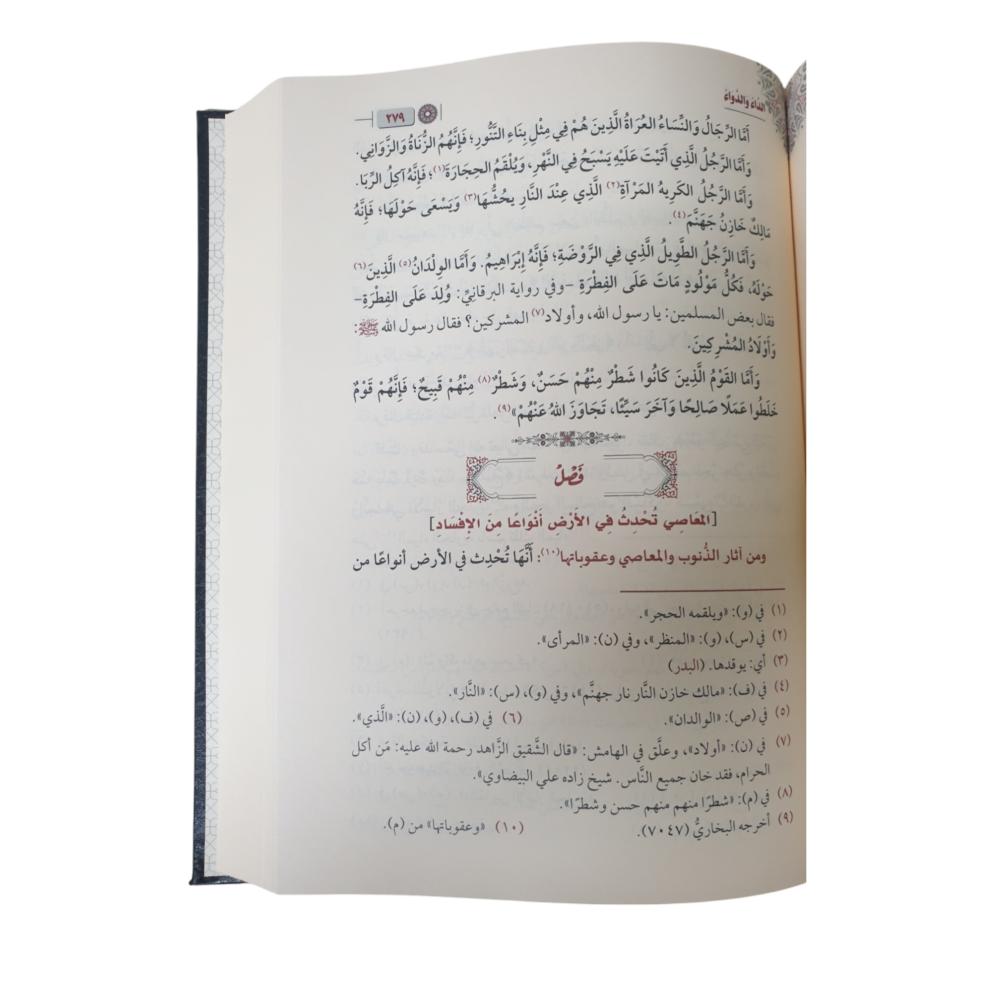 الداء والدواء
٢٧٩
أَمَّا الرِّجَالُ وَالنِّسَاءُ العُرَاةُ الَّذِينَ هُمْ فِي مِثْلِ بِنَاءِ التَّنُّورِ؛ فَإِنَّهُمُ الزُّنَاةُ وَالزَّوَانِي.
وَأَمَّا الرَّجُلُ الَّذِي أَتَيْتَ عَلَيْهِ يَسْبَحُ فِي النَّهْرِ، وَيُلْقَمُ الحِجَارَةَ(١)؛ فَإِنَّهُ آكِلُ الرِّبَا.
وَأَمَّا الرَّجُلُ الكَرِيهُ المَرْآةِ(٢) الَّذِي عِنْدَ النَّارِ يَحُشُّهَا(٣) وَيَسْعَى حَوْلَهَا؛ فَإِنَّهُ
مَالِكٌ خَازِنُ جَهَنَّمَ(٤).
وَأَمَّا الرَّجُلُ الطَّوِيلُ الَّذِي فِي الرَّوْضَةِ؛ فَإِنَّهُ إِبْرَاهِيمُ. وَأَمَّا الوِلْدَانُ(٥) الَّذِينَ(٦)
حَوْلَهُ، فَكُلُّ مَوْلُودٍ مَاتَ عَلَى الفِطْرَةِ -وفي رواية البرقانيِّ: وُلِدَ عَلَى الفِطْرَةِ-
فقال بعض المسلمين: يا رسول الله، وأولاد(٧) المشركين؟ فقال رسول الله ﷺ:
وَأَوْلَادُ المُشْرِكِينَ.
وَأَمَّا القَوْمُ الَّذِينَ كَانُوا شَطْرٌ مِنْهُمْ حَسَنٌ، وَشَطْرٌ(٨) مِنْهُمْ قَبِيحٌ؛ فَإِنَّهُمْ قَوْمٌ
خَلَطُوا عَمَلًا صَالِحًا وَآخَرَ سَيِّئًا، تَجَاوَزَ اللهُ عَنْهُمْ»(٩).
فَصْلٌ
[المَعَاصِي تُحْدِثُ فِي الأَرْضِ أَنْوَاعًا مِنَ الإِفْسَادِ]
ومن آثار الذُّنوب والمعاصي وعقوباتها(١٠): أَنَّهَا تُحْدِث في الأرض أنواعًا من
(١) في (و): «ويلقمه الحجر».
(٢) في (س)، (و): «المنظر»، وفي (ن): «المرأى».
(٣) أي: يوقدها. (البدر)
(٤) في (ف): «مالك خازن النَّار نار جهنَّم»، وفي (و)، (س): «النَّار».
(٥) في (ص): «الوالدان». (٦) في (ف)، (و)، (ن): «الَّذي».
(٧) في (ن): «أولاد»، وعلَّق في الهامش: «قال الشَّقيق الزَّاهد رحمة الله عليه: مَن أكل
الحرام، فقد خان جميع النَّاس. شيخ زاده علي البيضاوي».
(٨) في (م): «شطرًا منهم منهم حسن وشطرًا».
(٩) أخرجه البخاريُّ (٧٠٤٧). (١٠) «وعقوباتها» من (م).